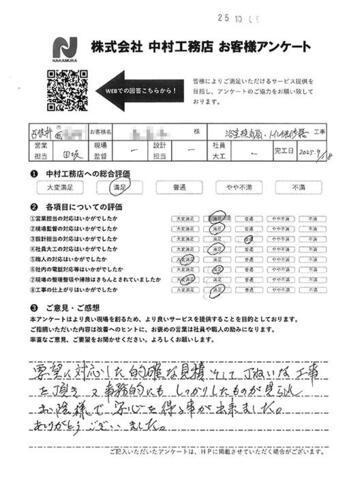 25.10.
N
NAKAMURA
株式会社 中村工務店 お客様アンケート
WEBでの回答こちらから！
皆様によりご満足いただけるサービス提供を
目指し、アンケートのご協力をお願い致して
おります。
お客様名 様 工事
営業担当 田坂 現場監督 ー 設計担当 ー 社員大工 ー 完工日 2025.9/18
❶ 中村工務店への総合評価
大変満足 満足 普通 やや不満 不満
❷ 各項目についての評価
①営業担当の対応はいかがでしたか 大変満足 満足 普通 やや不満 不満
②現場監督の対応はいかがでしたか 大変満足 満足 普通 やや不満 不満
③設計担当の対応はいかがでしたか 大変満足 満足 普通 やや不満 不満
④社員大工の対応はいかがでしたか 大変満足 満足 普通 やや不満 不満
⑤職人の対応はいかがでしたか 大変満足 満足 普通 やや不満 不満
⑥社内の電話対応等はいかがでしたか 大変満足 満足 普通 やや不満 不満
⑦現場の整理整頓や掃除はきちんとされていましたか 大変満足 満足 普通 やや不満 不満
⑧工事の仕上がりはいかがでしたか 大変満足 満足 普通 やや不満 不満
❸ ご意見・ご感想
本アンケートはより良い現場を創るため、より良いサービスを提供することを目的としております。
ご指摘いただいた内容は改善へのヒントに、お褒めの言葉は社員や職人の励みになります。
率直なご意見、ご要望をお聞かせください。よろしくお願いします。
要望に対応した的確な見積そして丁ねいな工事
を頂き又事務的にもしっかりしたものが見られ
お陰様で安心を得る事が出来ました。
ありがとうございました。
ご記入いただいたアンケートは、HPに掲載させていただく場合がございます。